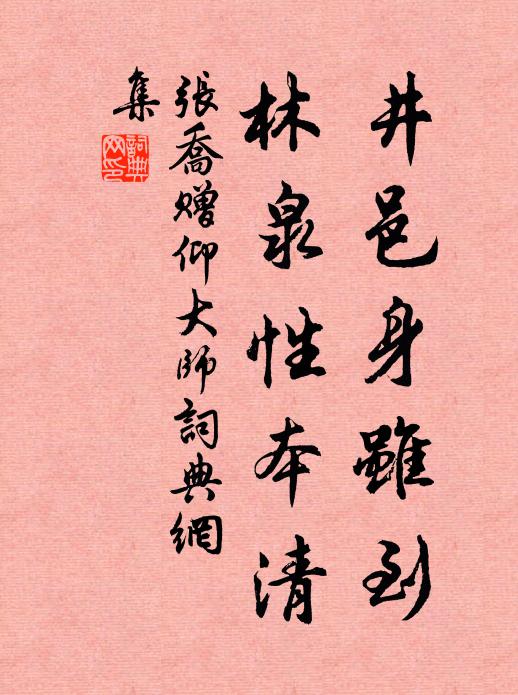 井邑身雖到
林泉性本清
張喬贈仰大師詞典網
集
詞典
网印